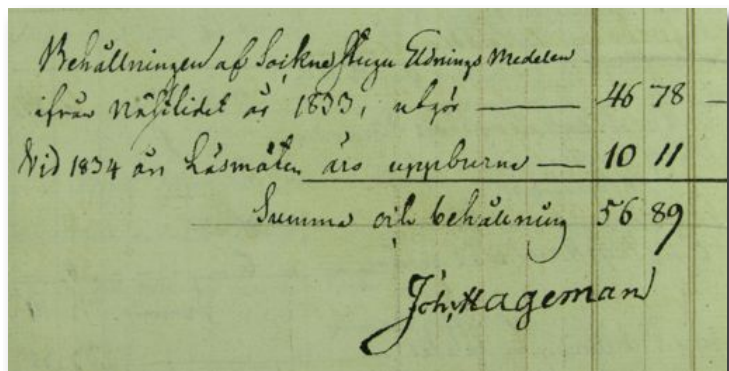 Behållningen af Sockne Stugu Eldnings Medelen
ifrån Nästlidet år 1833, utgör — 46 78 —
Vid 1834 års Läsmöten äro uppburne — 10 11
Summa och behållning 56 89
Joh, Hageman